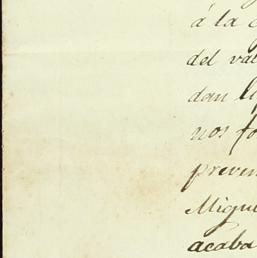 á la
del val
dan
nos fo
preven
Migue
acaba